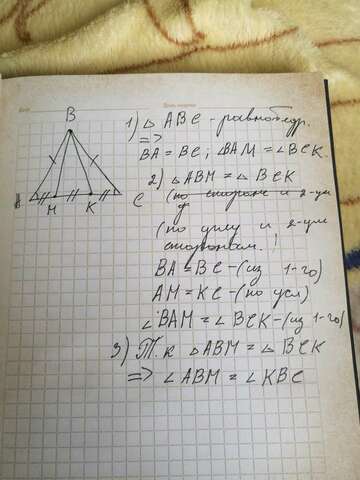 Дата
B
A
M
K
C
1) △ ABC - равнобедр.
=>
BA = BC; ∠BAM = ∠BCK.
2) △ABM = △ BCK
(по стороне и 2-ум
(по углу и 2-ум
сторонам!
BA = BC - (из 1-го)
AM = KC - (по усл)
∠BAM = ∠ BCK - (из 1-го)
3) Т.к △ABM = △ BCK
=> ∠ABM = ∠KBC